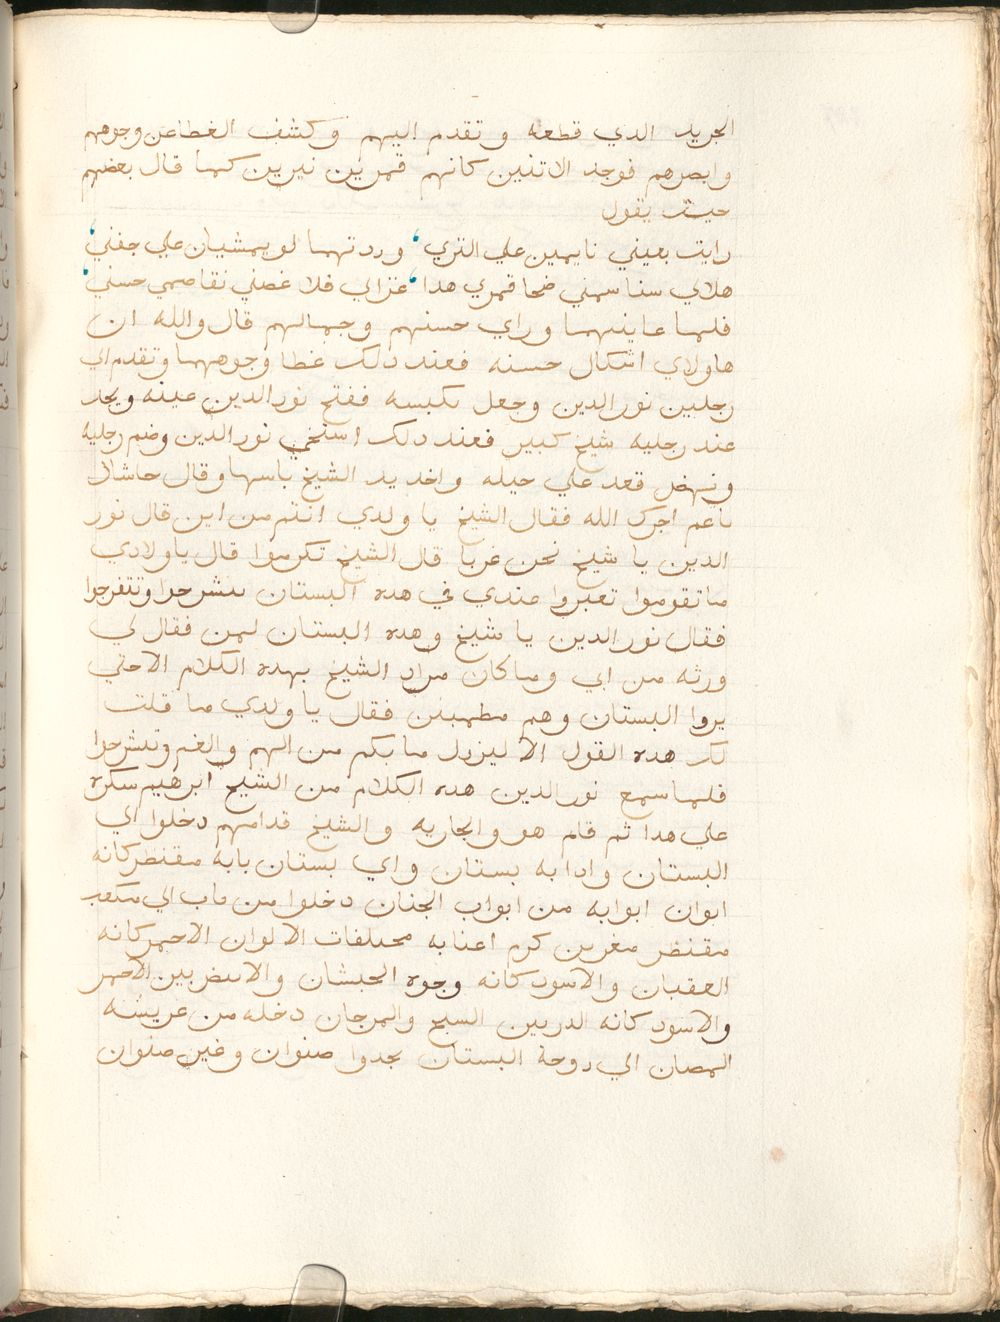 الجريد الدي قطعه و تقدم اليهم و كشف الغطا عن وجوههم
وابصرهم فوجد الاتنين كانهم قمرين نيرين كما قال بعضهم
حيث يقول
رايت بعيني نايمين علي التري ، ووردتهما لو يمشيان علي جفني ،
هلالي سنا سمني ضحا قمري هدا ، غزالي فلا غصني نقا صمي حسني ،
فلما عاينهما وراي حسنهم وجمالهم قال والله ان
هاولاي اشكال حسنه فعند دلك غطا وجوههما وتقدم الي
رجلين نور الدين وجعل يكبسه ففتح نور الدين عينه ويجد
عند رجليه شيخ كبير فعند دلك استحي نور الدين وضم رجليه
ونهض قعد علي حيله واخد يد الشيخ باسها وقال حاشاك
ياعم اجرك الله فقال الشيخ يا ولدي انتم من اين قال نور
الدين يا شيخ نحن غربا قال الشيخ تكرموا قال ياولادي
ما تقوموا تعبروا عندي في هده البستان تنشرحوا وتتفرجوا
فقال نور الدين يا شيخ وهده البستان لمن فقال لي
ورثه من ابي وما كان مراد الشيخ بهده الكلام الا حتي
يروا البستان وهم مطمينين فقال يا ولدي ما قلت
لك هده القول الا ليزول ما بكم من الهم والغم وتنشرحوا
فلما سمع نور الدين هده الكلام من الشيخ ابرهيم سكره
علي هدا ثم قام هو والجاريه والشيخ قدامهم دخلوا الي
البستان وادا به بستان واي بستان بابه مقنطر كانه
ايوان ابوابه من ابواب الجنان دخلوا من باب الي مكعب
مقنطر مغرين كرم اعنابه مختلفات الالوان الاحمر كانه
العقبان والاسود كانه وجوه الحبشان والابيض بين الاحمر
والاسود كانه الدر بين السبج والمرجان دخله من عريشه
المصان الي دوحة البستان يجدوا صنوان وغير صنوان